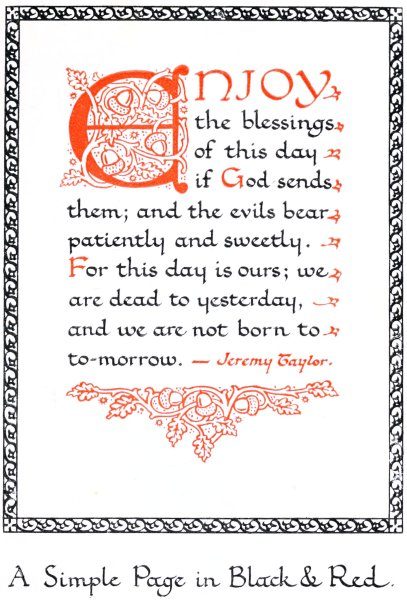 ENJOY
the blessings
of this day
if God sends
them; and the evils bear
patiently and sweetly.
For this day is ours; we
are dead to yesterday,
and we are not born to
to-morrow. — Jeremy Taylor.
A Simple Page in Black & Red.